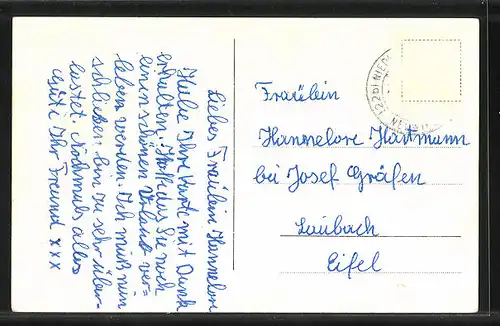 Liebes Fräulein Hannelore
Habe Ihre Karte mit Dank
erhalten. Hoffe das Sie noch
einen schönen Urlaub ver=
leben werden. Ich muß nun
schließen bin zu sehr über=
lastet. Nochmals alles
Gute Ihr Freund xxx
(22b) NIED
Fräulein
Hannelore Hartmann
bei Josef Gräfen
Laubach
Eifel